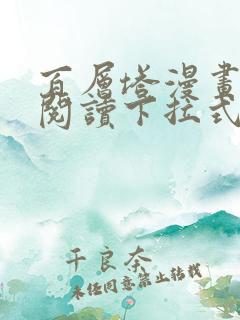 百層塔漫畫
閱讀下拉式
千良奈
未經同意禁止轉載